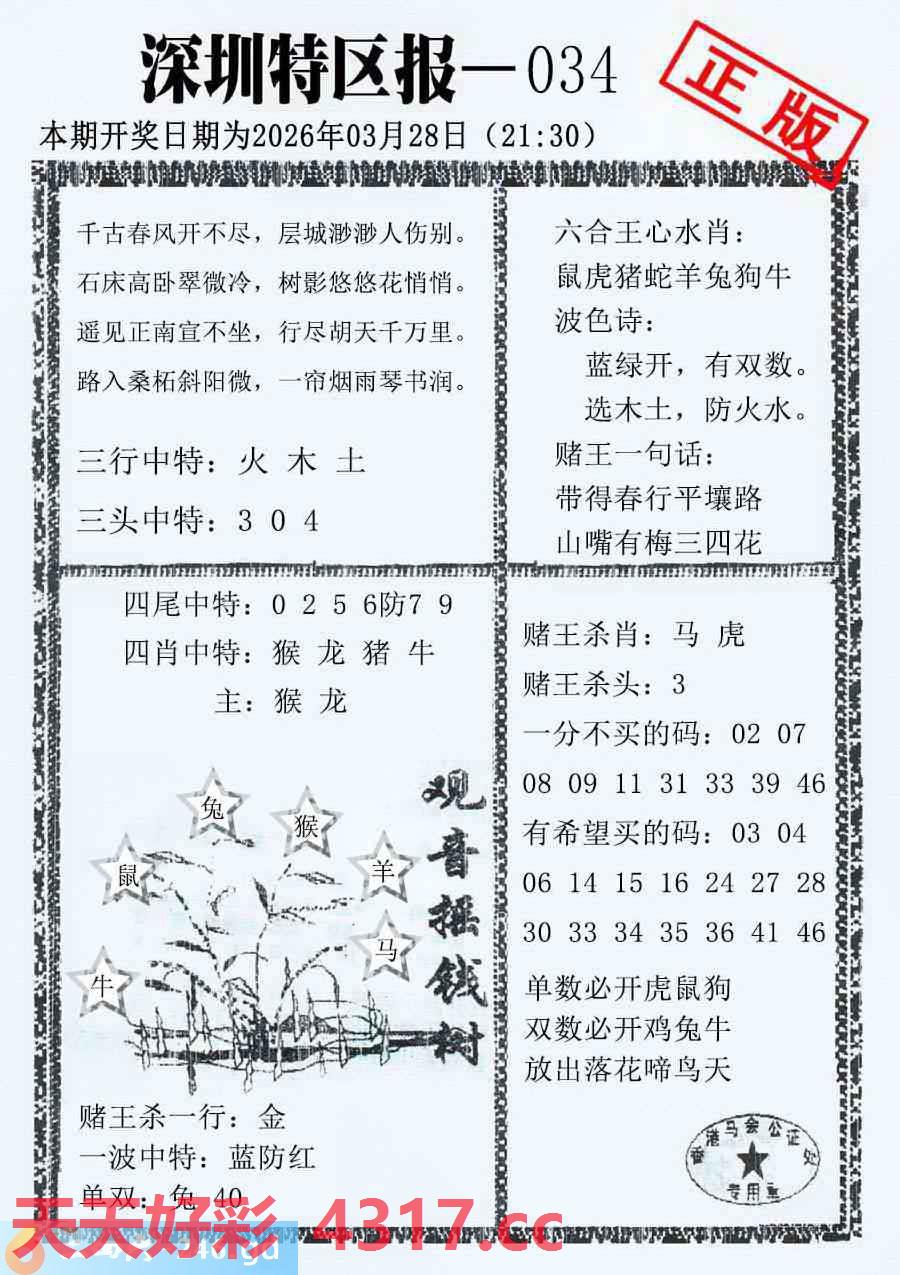 深圳特区报—034
正版
本期开奖日期为2026年03月28日（21:30）
千古春风开不尽，层城渺渺人伤别。
石床高卧翠微冷，树影悠悠花悄悄。
遥见正南宣不坐，行尽胡天千万里。
路入桑柘斜阳微，一帘烟雨琴书润。
三行中特：火 木 土
三头中特：3 0 4
六合王心水肖：
鼠虎猪蛇羊兔狗牛
波色诗：
蓝绿开，有双数。
选木土，防火水。
赌王一句话：
带得春行平壤路
山嘴有梅三四花
四尾中特：0 2 5 6防7 9
四肖中特：猴 龙 猪 牛
主：猴 龙
观音摇钱树
兔
猴
鼠
羊
马
牛
赌王杀一行：金
一波中特：蓝防红
单双：兔 40
赌王杀肖：马 虎
赌王杀头：3
一分不买的码：02 07
08 09 11 31 33 39 46
有希望买的码：03 04
06 14 15 16 24 27 28
30 33 34 35 36 41 46
单数必开虎鼠狗
双数必开鸡兔牛
放出落花啼鸟天
香港马会公证处
专用章
天天好彩 4317.cc